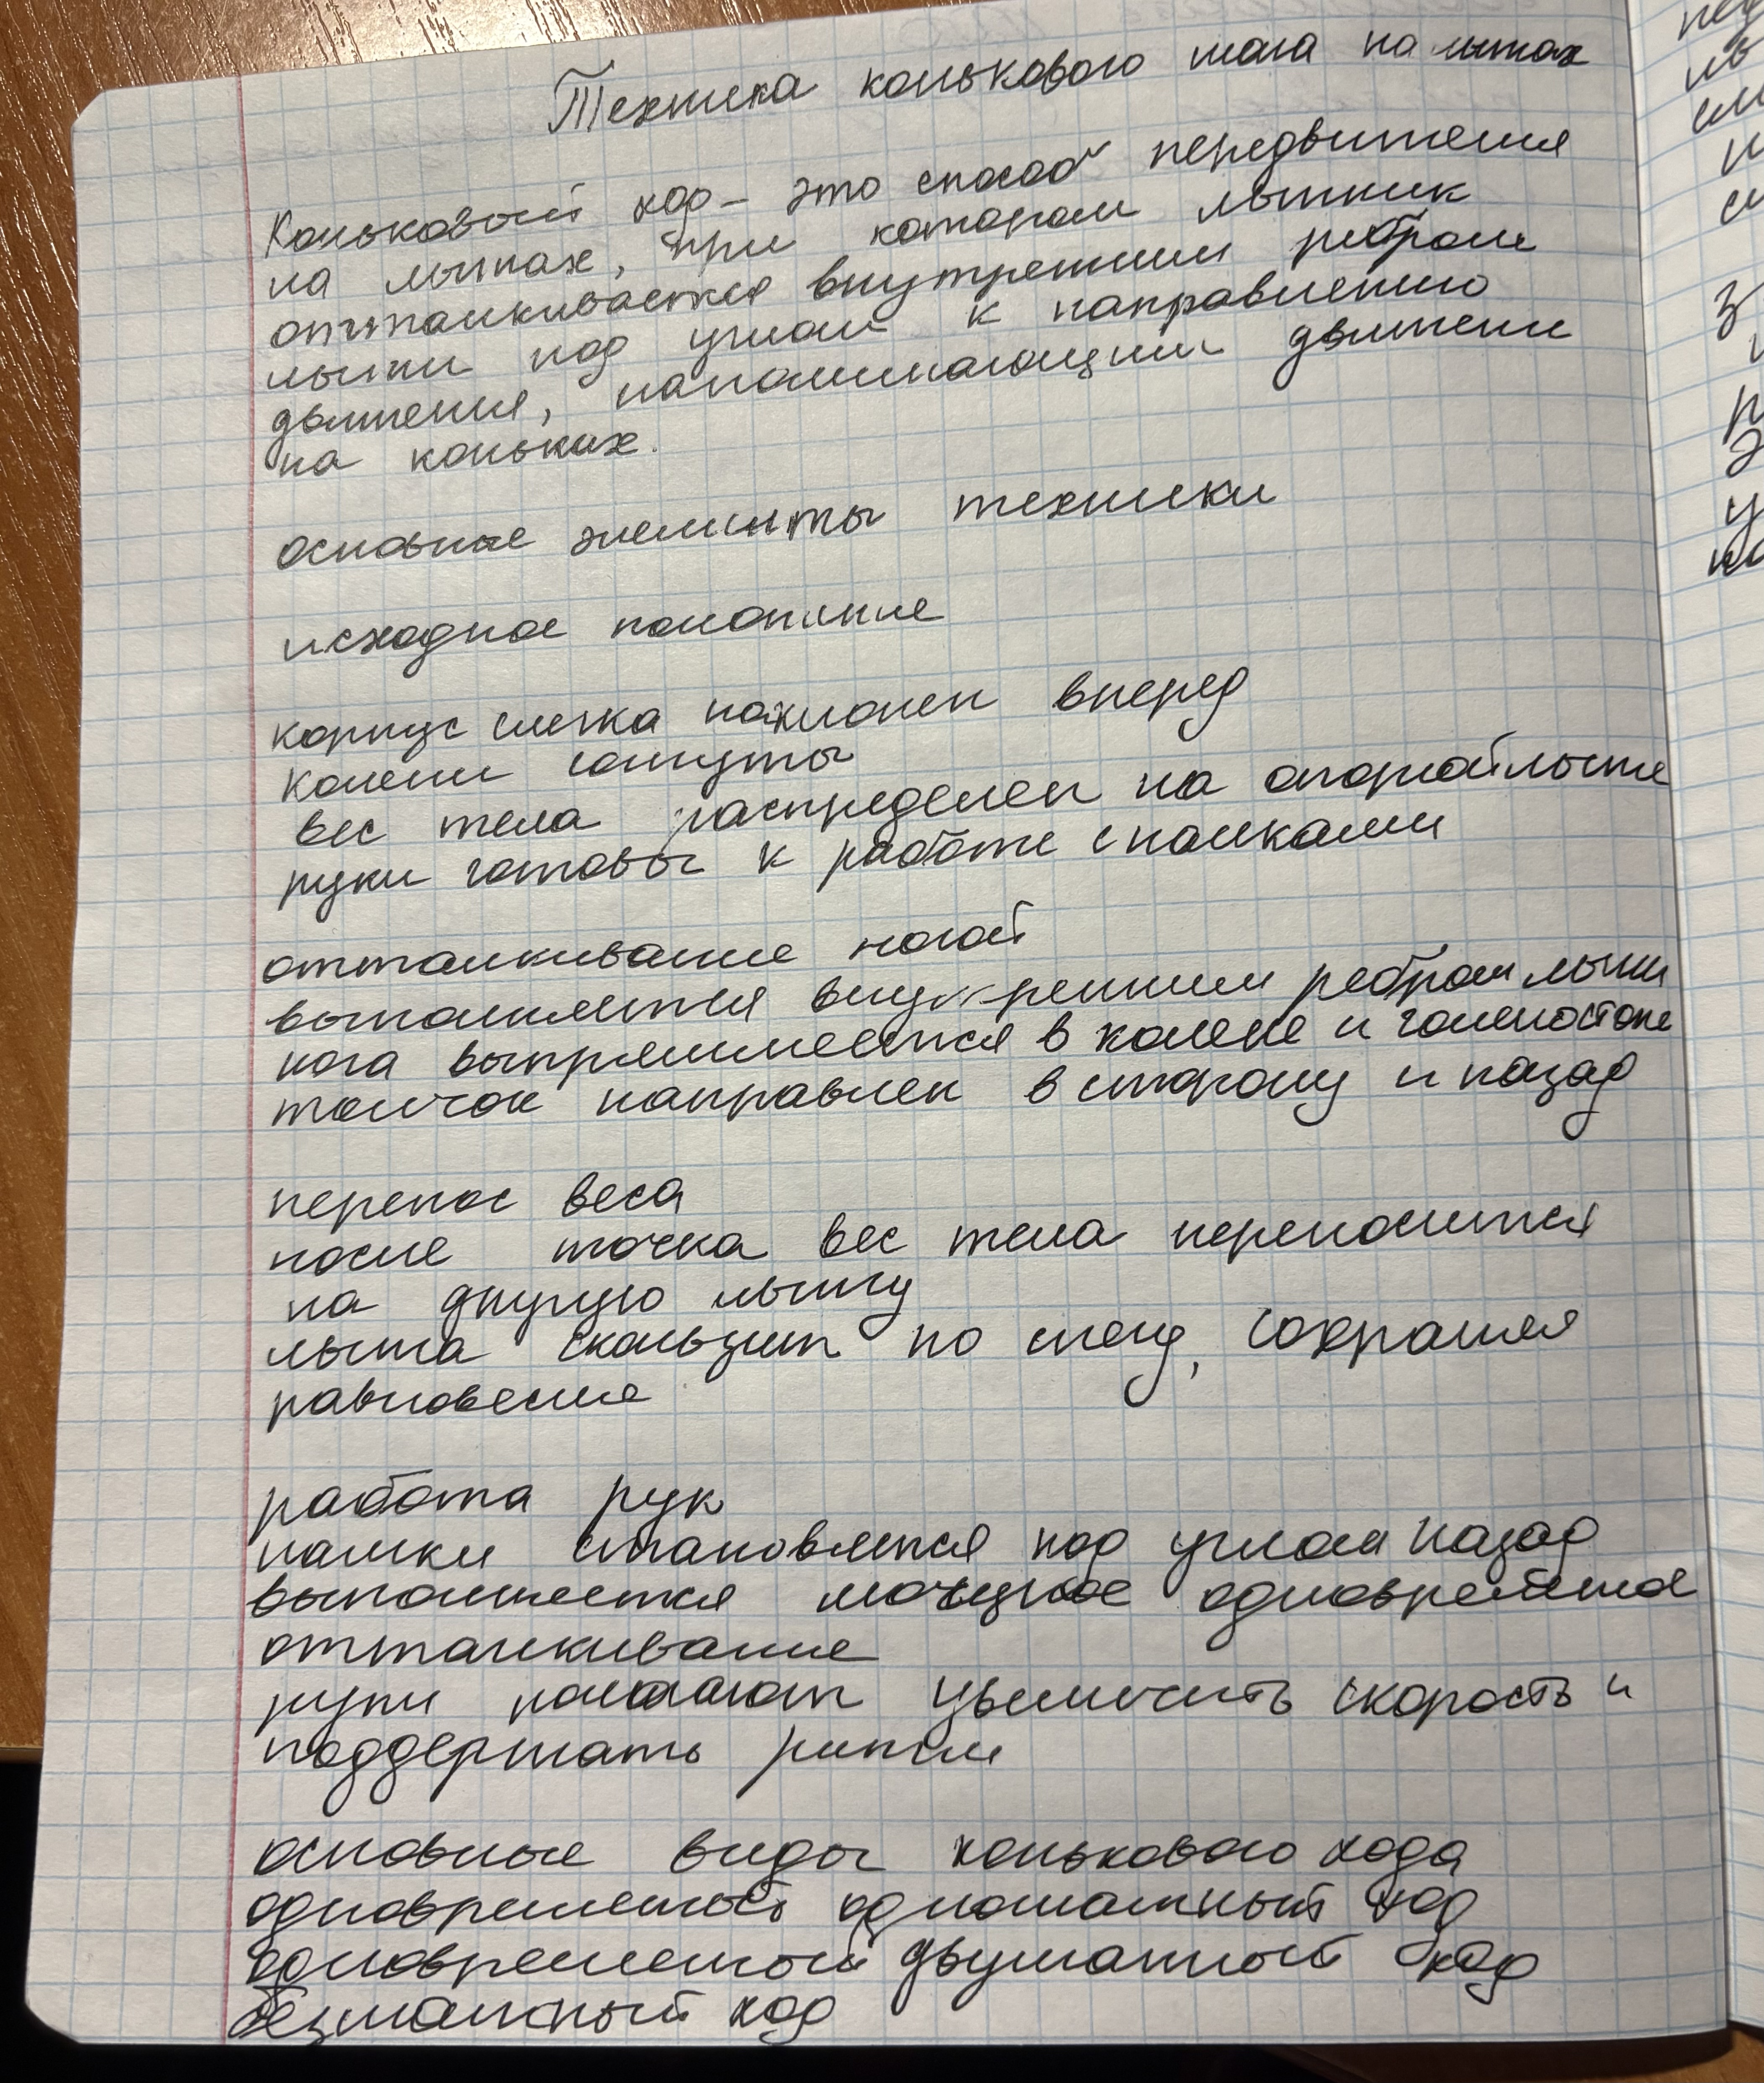 Техника конькового шага на лыжах
Коньковый ход – это способ передвижения
на лыжах, при котором лыжник
отталкивается внутренним ребром
лыжи под углом к направлению
движения, напоминающим движени
на коньках.
основные элементы техники
исходное положение
корпус слегка наклонен вперед
колени согнуты
вес тела распределен на опорной лыже
руки готовы к работе с палками
отталкивание ногой
выполняется внутренним ребром лыжи
нога выпрямляется в колене и голеностопе
толчок направлен в сторону и назад
перенос веса
после точка вес тела переносится
на другую лыжу
лыжа скользит по снегу, сохраняя
равновесие
работа рук
палки становятся под углом назад
выполняется мощное одновременное
отталкивание
руки помогают увеличить скорость и
поддержать ритм
основные виды конькового хода
одновременный одношажный ход
одновременный двушажный ход
безшажный ход